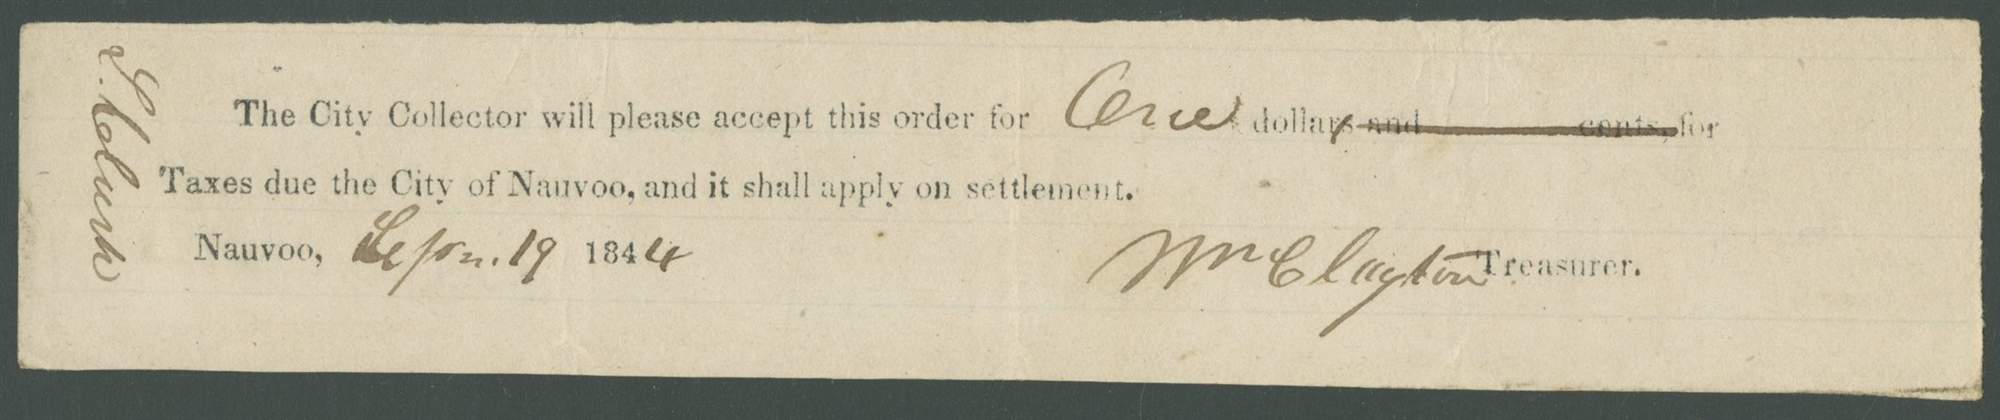 The City Collector will please accept this order for One dollars and cents, for
Taxes due the City of Nauvoo, and it shall apply on settlement.
Nauvoo, Sepr. 19 1844 Wm Clayton Treasurer.